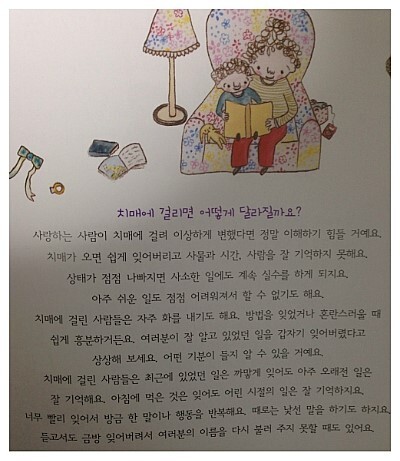 치매에 걸리면 어떻게 달라질까요?
사랑하는 사람이 치매에 걸려 이상하게 변했다면 정말 이해하기 힘들 거예요.
치매가 오면 쉽게 잊어버리고 사물과 시간, 사람을 잘 기억하지 못해요.
상태가 점점 나빠지면 사소한 일에도 계속 실수를 하게 되지요.
아주 쉬운 일도 점점 어려워져서 할 수 없기도 해요.
치매에 걸린 사람들은 자주 화를 내기도 해요. 방법을 잊었거나 혼란스러울 때
쉽게 흥분하거든요. 여러분이 잘 알고 있었던 일을 갑자기 잊어버렸다고
상상해 보세요. 어떤 기분이 들지 알 수 있을 거예요.
치매에 걸린 사람들은 최근에 있었던 일은 까맣게 잊어도 아주 오래전 일은
잘 기억해요. 아침에 먹은 것은 잊어도 어린 시절의 일은 잘 기억하지요.
너무 빨리 잊어서 방금 한 말이나 행동을 반복해요. 때로는 낯선 말을 하기도 하지요.
듣고서도 금방 잊어버려서 여러분의 이름을 다시 불러 주지 못할 때도 있어요.